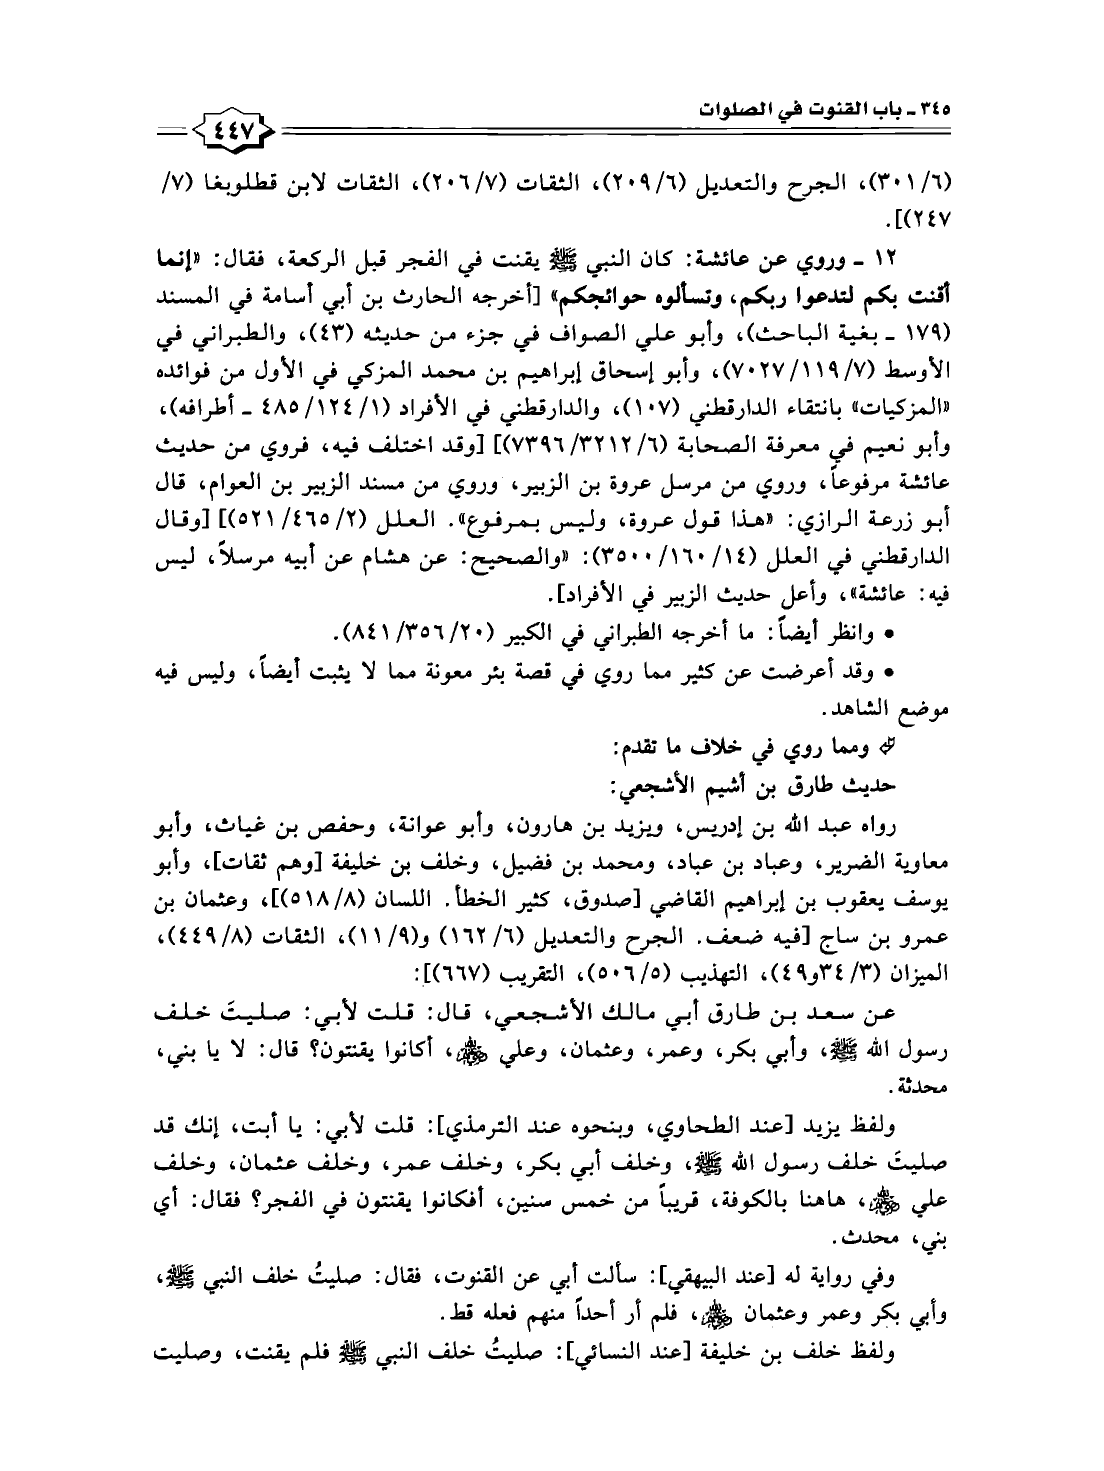 ٣٤٥ - باب القنوت في الصلوات
٤٤٧
(٣٠١/٦)، الجرح والتعديل (٢٠٩/٦)، الثقات (٢٠٦/٧)، الثقات لابن قطلوبغا (٧/
٢٤٧)].
١٢ - وروي عن عائشة: كان النبي ﷺ يقنت في الفجر قبل الركعة، فقال: «إنما
أقنت بكم لتدعوا ربكم، وتسألوه حوائجكم» [أخرجه الحارث بن أبي أسامة في المسند
(١٧٩ - بغية الباحث)، وأبو علي الصواف في جزء من حديثه (٤٣)، والطبراني في
الأوسط (٧٠٢٧/١١٩/٧)، وأبو إسحاق إبراهيم بن محمد المزكي في الأول من فوائده
«المزكيات» بانتقاء الدارقطني (١٠٧)، والدارقطني في الأفراد (٤٨٥/١٢٤/١ - أطرافه)،
وأبو نعيم في معرفة الصحابة (٧٣٩٦/٣٢١٢/٦)] [وقد اختلف فيه، فروي من حديث
عائشة مرفوعاً، وروي من مرسل عروة بن الزبير، وروي من مسند الزبير بن العوام، قال
أبو زرعة الرازي: «هذا قول عروة، وليس بمرفوع». العلل (٥٢١/٤٦٥/٢)] [وقال
الدارقطني في العلل (٣٥٠٠/١٦٠/١٤): «والصحيح: عن هشام عن أبيه مرسلاً، ليس
فيه: عائشة»، وأعل حديث الزبير في الأفراد].
• وانظر أيضاً: ما أخرجه الطبراني في الكبير (٨٤١/٣٥٦/٢٠).
• وقد أعرضت عن كثير مما روي في قصة بئر معونة مما لا يثبت أيضاً، وليس فيه
موضع الشاهد.
ومما روي في خلاف ما تقدم:
حديث طارق بن أشيم الأشجعي:
رواه عبد الله بن إدريس، ويزيد بن هارون، وأبو عوانة، وحفص بن غياث، وأبو
معاوية الضرير، وعباد بن عباد، ومحمد بن فضيل، وخلف بن خليفة [وهم ثقات]، وأبو
يوسف يعقوب بن إبراهيم القاضي [صدوق، كثير الخطأ. اللسان (٥١٨/٨)]، وعثمان بن
عمرو بن ساج [فيه ضعف. الجرح والتعديل (١٦٢/٦) و(١١/٩)، الثقات (٤٤٩/٨)،
الميزان (٣٤/٣و٤٩)، التهذيب (٥٠٦/٥)، التقريب (٦٦٧)]:
عن سعد بن طارق أبي مالك الأشجعي، قال: قلت لأبي: صليتَ خلف
رسول الله ﷺ، وأبي بكر، وعمر، وعثمان، وعلي ﷺ، أكانوا يقنتون؟ قال: لا يا بني،
محدثة.
ولفظ يزيد [عند الطحاوي، وبنحوه عند الترمذي]: قلت لأبي: يا أبت، إنك قد
صليتَ خلف رسول الله ﷺ، وخلف أبي بكر، وخلف عمر، وخلف عثمان، وخلف
علي ﷺ، هاهنا بالكوفة، قريباً من خمس سنين، أفكانوا يقنتون في الفجر؟ فقال: أي
بني، محدث.
وفي رواية له [عند البيهقي]: سألت أبي عن القنوت، فقال: صليتُ خلف النبي ﷺ،
وأبي بكر وعمر وعثمان ﷺ، فلم أر أحداً منهم فعله قط.
ولفظ خلف بن خليفة [عند النسائي]: صليتُ خلف النبي ﷺ فلم يقنت، وصليت